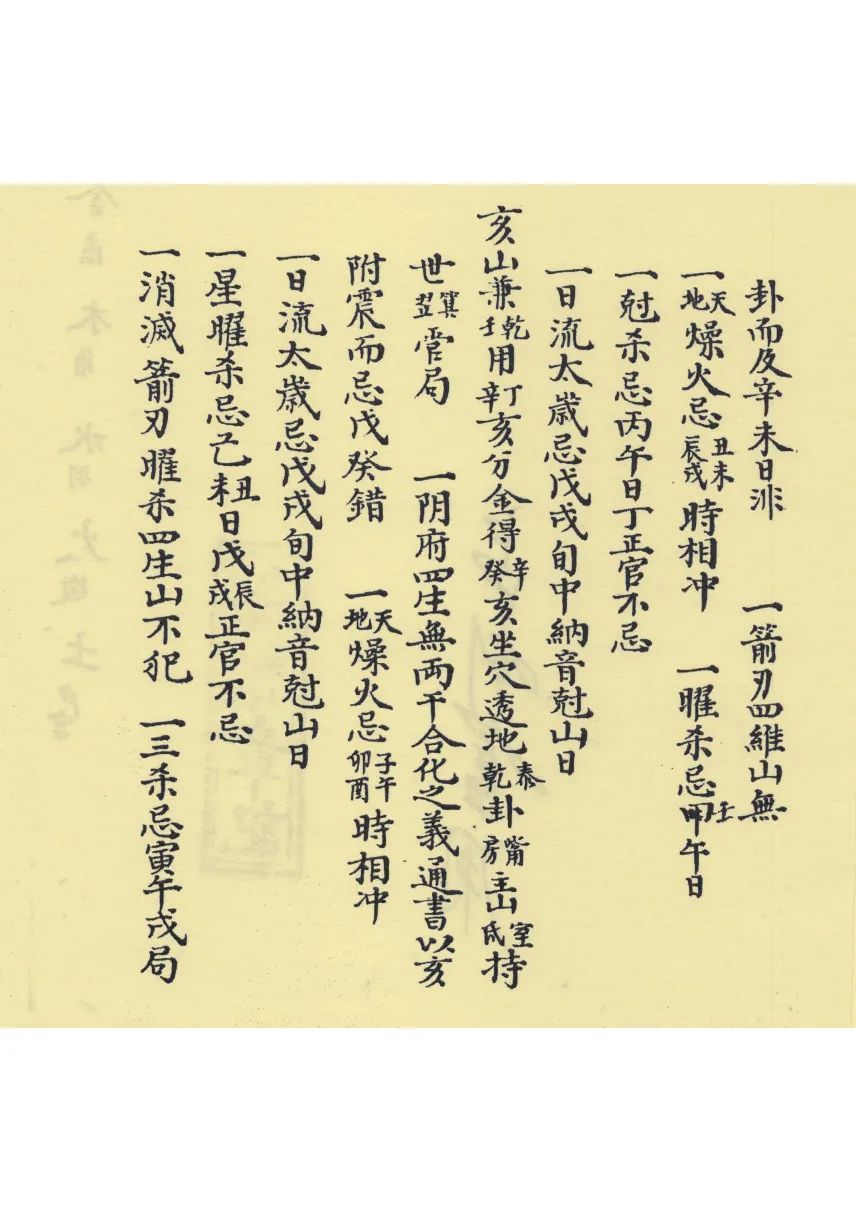 卦而反辛未日非　一箭刃四維山無
一天地燥火忌丑未辰戌時相冲　一曜杀忌甲壬午日
一尅杀忌丙午日丁正官不忌
一日流太歲忌戊戌旬中納音尅山日
亥山兼乾壬用丁辛亥分金得辛癸亥坐穴透地泰乾卦觜房主山室氐持
世箕翌管局　一阴府四生無両干合化之義通書以亥
附震而忌戊癸錯　一天地燥火忌子午卯酉時相冲
一日流太歲忌戊戌旬中納音尅山日
一星曜杀忌乙丑未日戊辰戌正官不忌
一消滅箭刃曜杀四生山不犯　一三杀忌寅午戌局